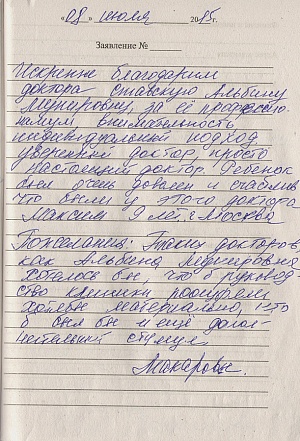 «08» июля 2015г.
Заявление №
Искренне благодарим
доктора Альбину
за её профессио-
нализм внимательность
индивидуальный подход
доктор, просто
настоящий доктор. Ребёнок
был очень доволен и счастлив
что были у этого доктора
Максим 9 лет, г. Москва
Пожелания: Таких докторов
как Альбина
хотелось бы, что б руковод-
ство клиники поощряли
хотя бы материально, что
б был бы и ещё допол-
нительный стимул
Макаровы.